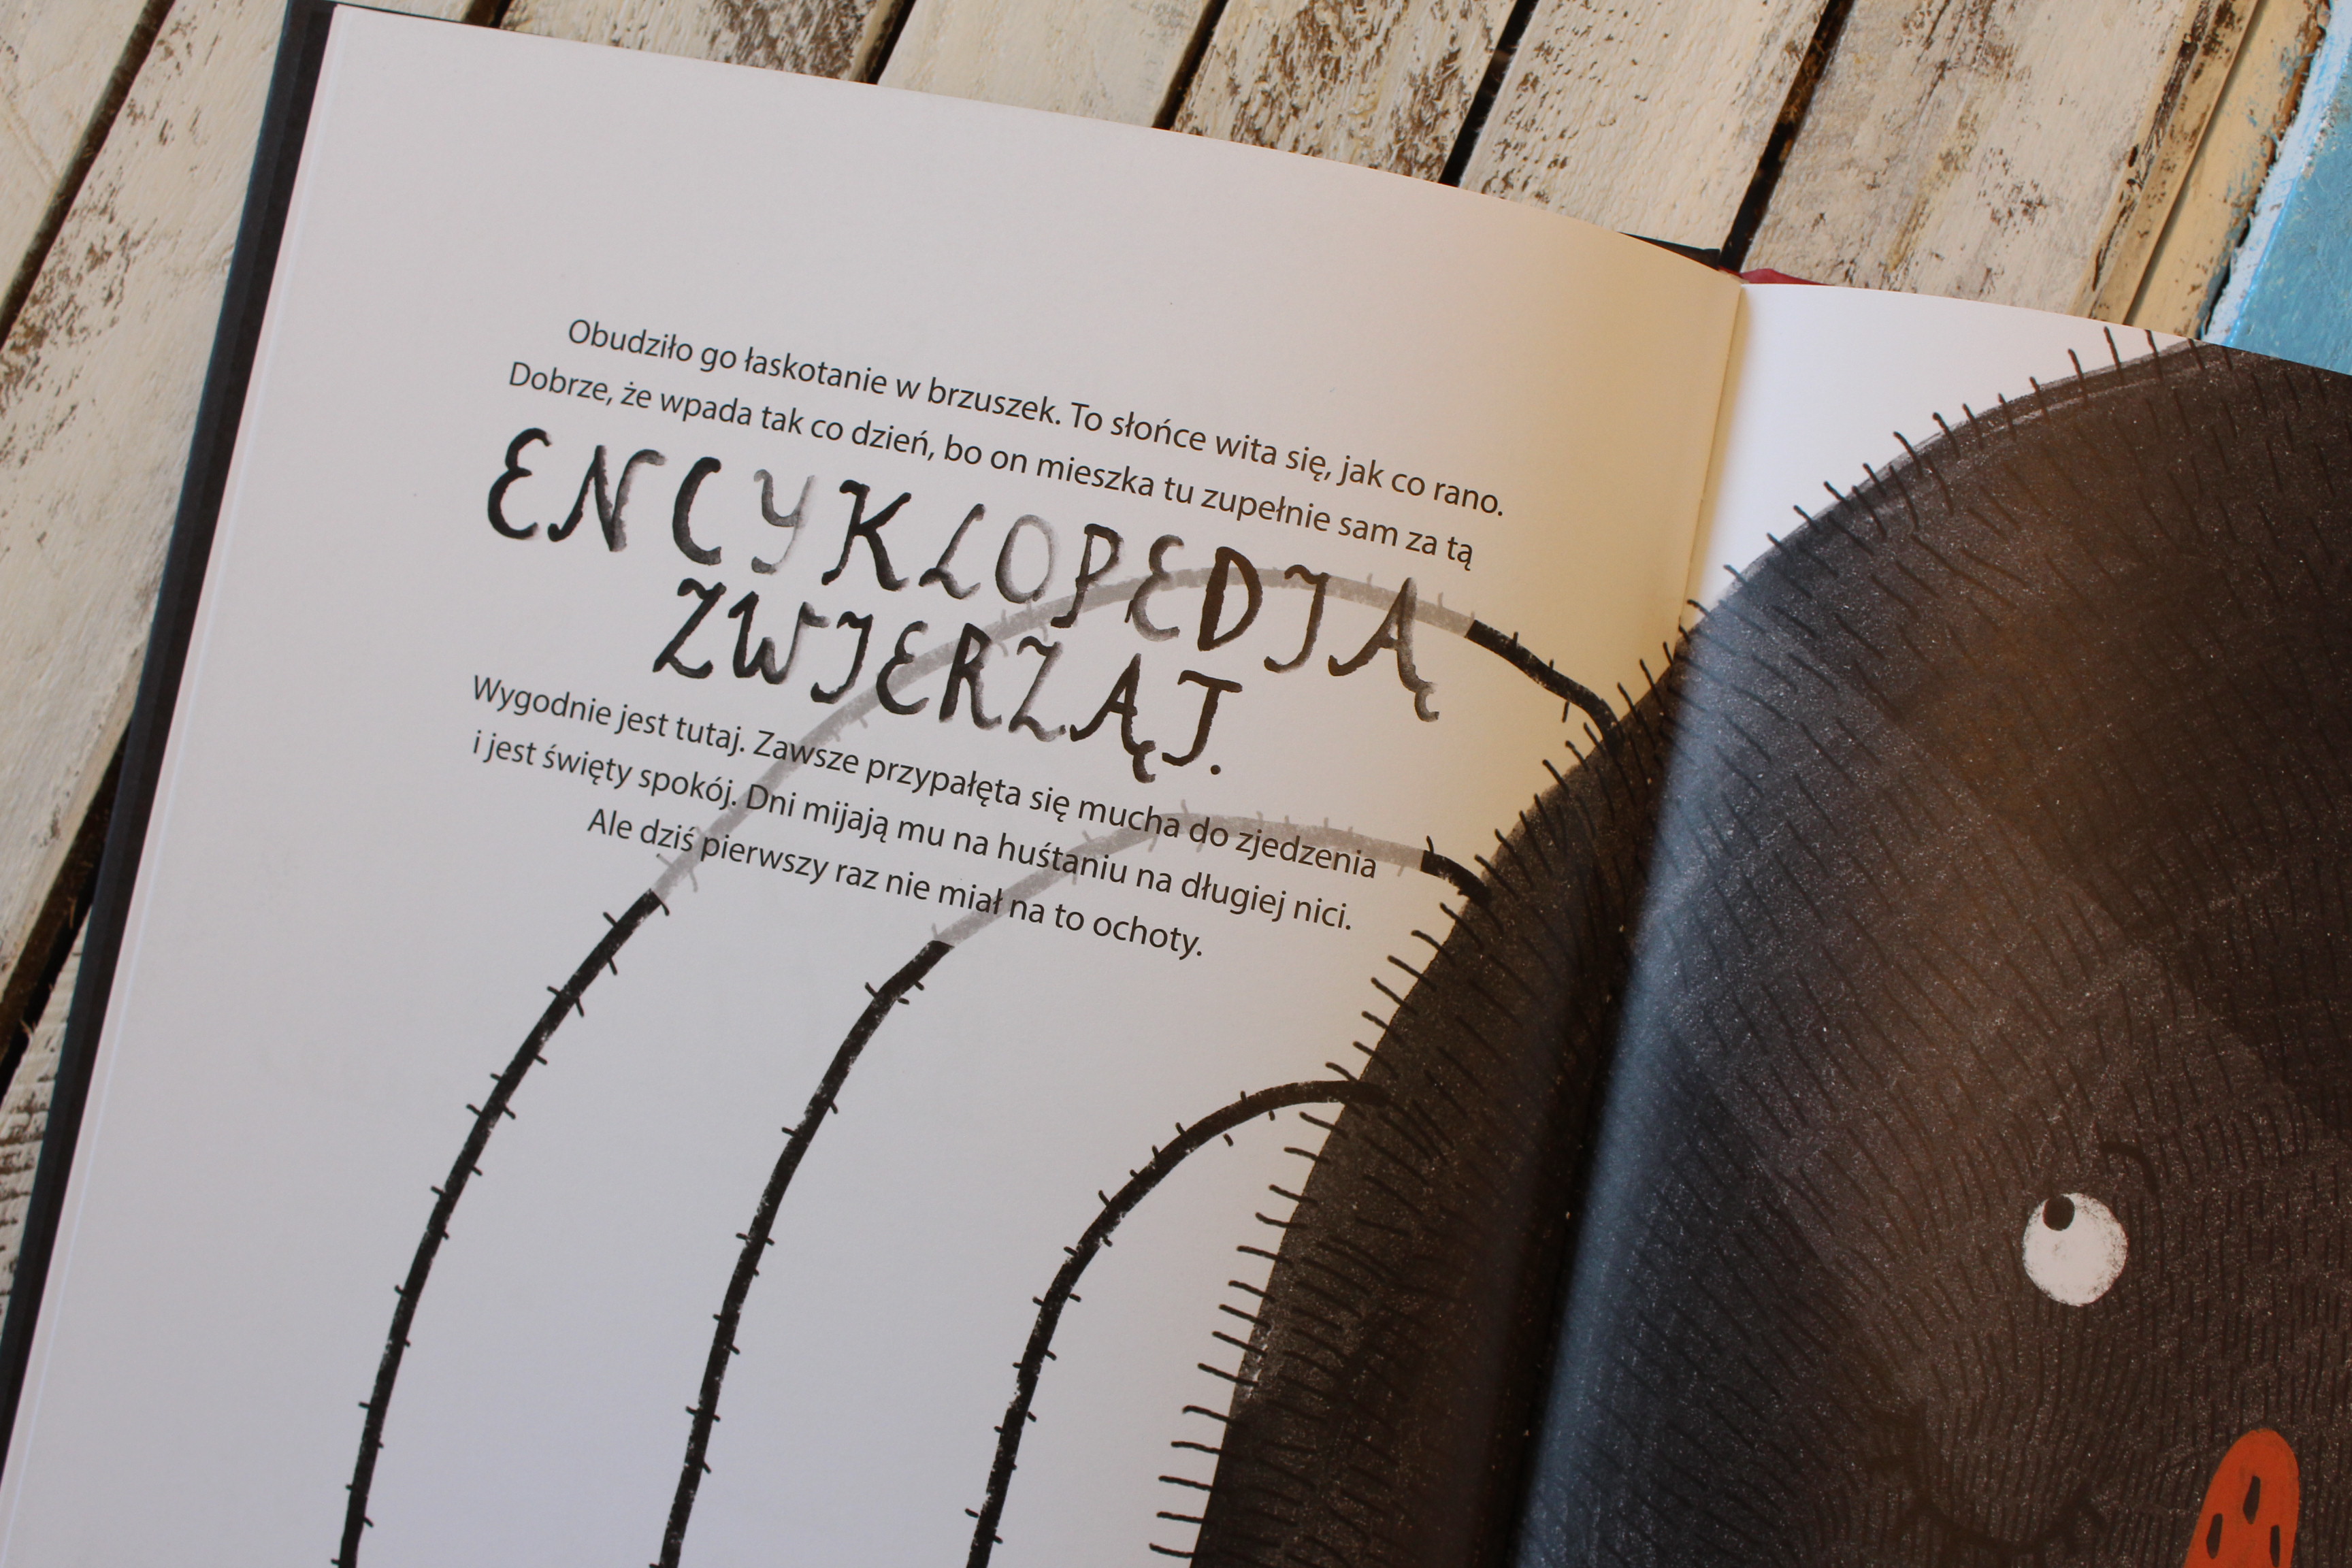 Obudziło go łaskotanie w brzuszek. To słońce wita się, jak co rano.
Dobrze, że wpada tak co dzień, bo on mieszka tu zupełnie sam za tą
ENCYKLOPEDIĄ
ZWIERZĄT.
Wygodnie jest tutaj. Zawsze przypałęta się mucha do zjedzenia
i jest święty spokój. Dni mijają mu na huśtaniu na długiej nici.
Ale dziś pierwszy raz nie miał na to ochoty.